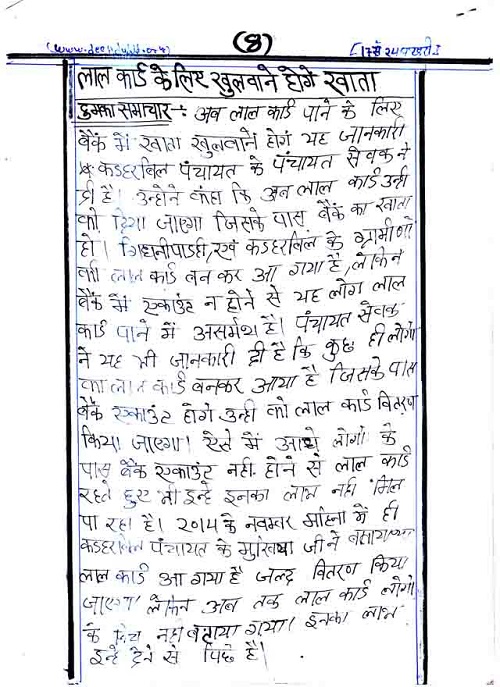 (8)
लाल कार्ड के लिए खुलवाने होंगे खाता
दुमका समाचार -: अब लाल कार्ड पाने के लिए
बैंक में खाता खुलवाने होगें यह जानकारी
कडहरबिल पंचायत के पंचायत सेवक ने
दी है। उन्होने कहा कि अब लाल कार्ड उन्ही
को दिया जाएगा जिसके पास बैंक का खाता
हो। गिधानीपाहाड़ी एवं कडहरबिल के ग्रामीणो
का लाल कार्ड बन कर आ गया है, लेकिन
बैंक में एकाउंट न होने से यह लोग लाल
कार्ड पाने में असमर्थ है। पंचायत सेवक
ने यह भी जानकारी दी है कि कुछ ही लोगो
का लाल कार्ड बनकर आया है जिसके पास
बैंक एकाउंट होगे उन्ही को लाल कार्ड वितरण
किया जाएगा। ऐसे में आधे लोगो के
पास बैंक एकाउंट नही होने से लाल कार्ड
रहते हुए भी इन्हे इनका लाभ नही मिल
पा रहा है। 2014 के नवम्बर महिना में ही
कडहरबिल पंचायत के मुखिया जी ने बताया
लाल कार्ड आ गया है जल्द वितरण किया
जाएगा लेकिन अब तक लाल कार्ड लोगो
के बिच नही बटाया गया। इनका लाभ
इन्हे देने से पिछे है।